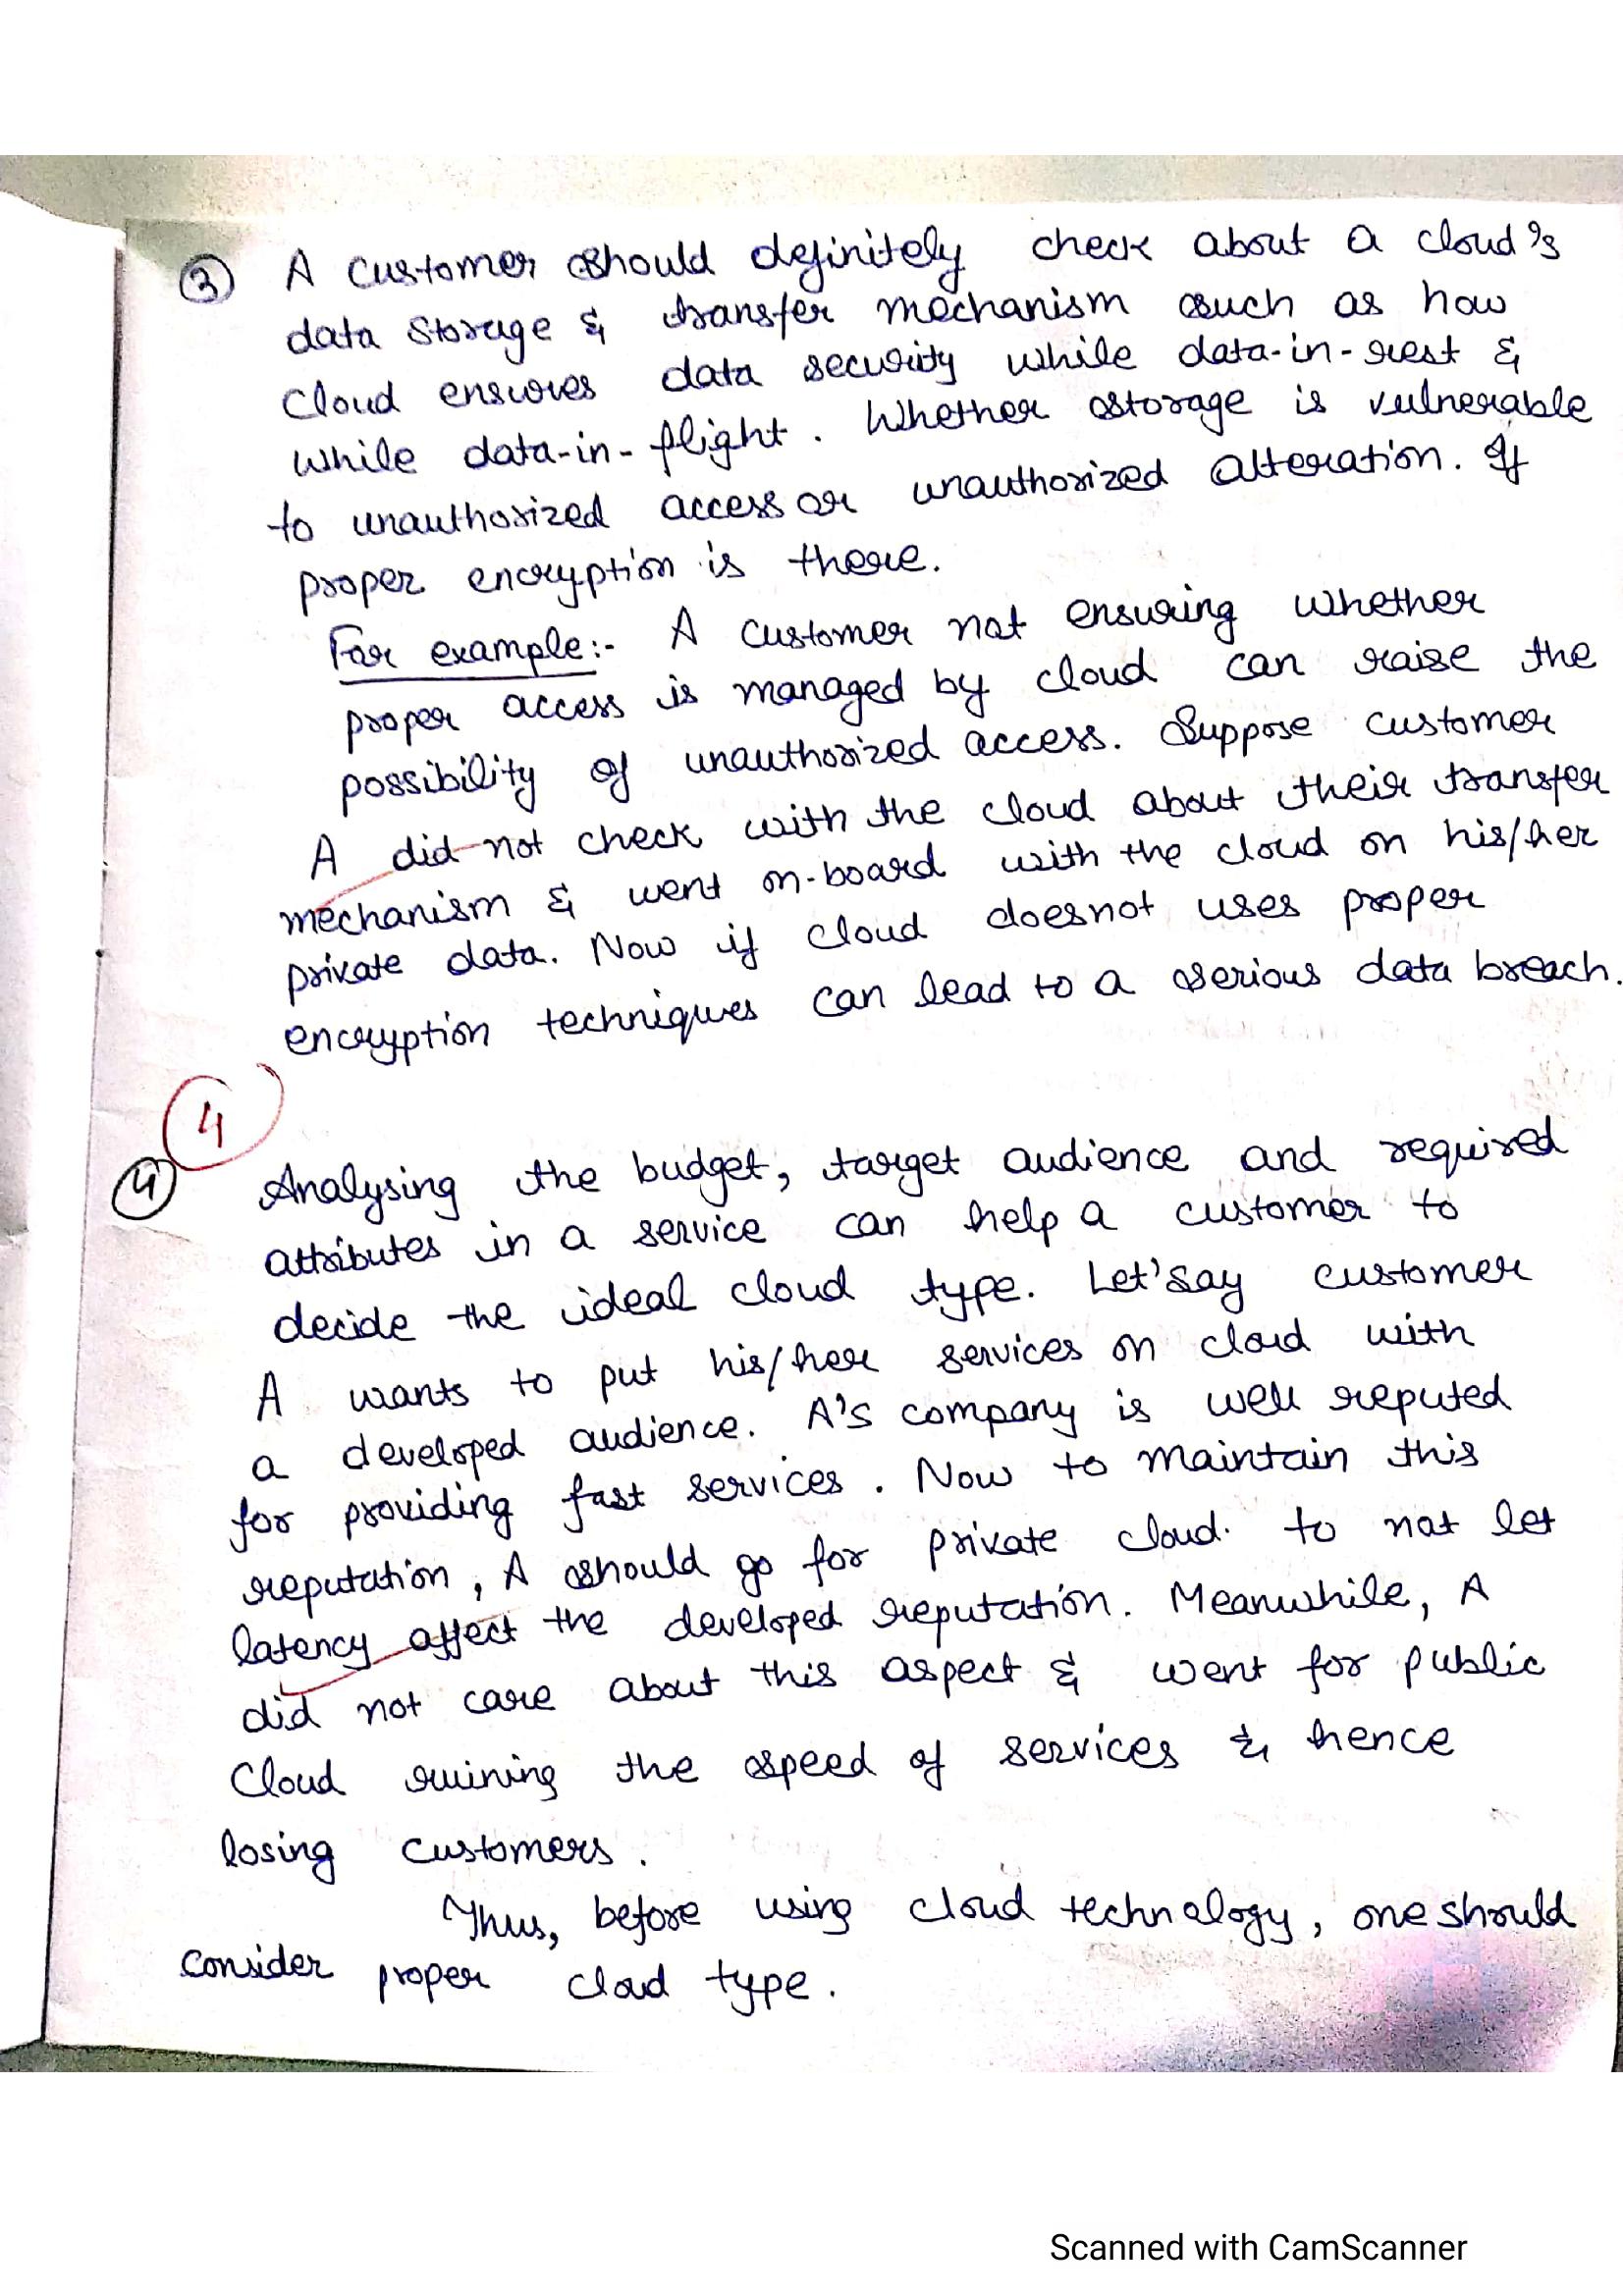 ③ A customer should definitely check about a cloud's
data storage & transfer mechanism such as how
cloud ensures data security while data-in-rest &
while data-in-flight. Whether storage is vulnerable
to unauthorized access or unauthorized alteration. If
proper encryption is there.
For example:- A customer not ensuring whether
proper access is managed by cloud can raise the
possibility of unauthorized access. Suppose customer
A did not check with the cloud about their transfer
mechanism & went on-board with the cloud on his/her
private data. Now if cloud doesnot uses proper
encryption techniques can lead to a serious data breach.
4
④ Analysing the budget, target audience and required
attributes in a service can help a customer to
decide the ideal cloud type. Let'say customer
A wants to put his/her services on cloud with
a developed audience. A's company is well reputed
for providing fast services. Now to maintain this
reputation, A should go for private cloud. to not let
latency affect the developed reputation. Meanwhile, A
did not care about this aspect & went for public
cloud ruining the speed of services & hence
losing customers.
Thus, before using cloud technology, one should
consider proper cloud type.
Scanned with CamScanner